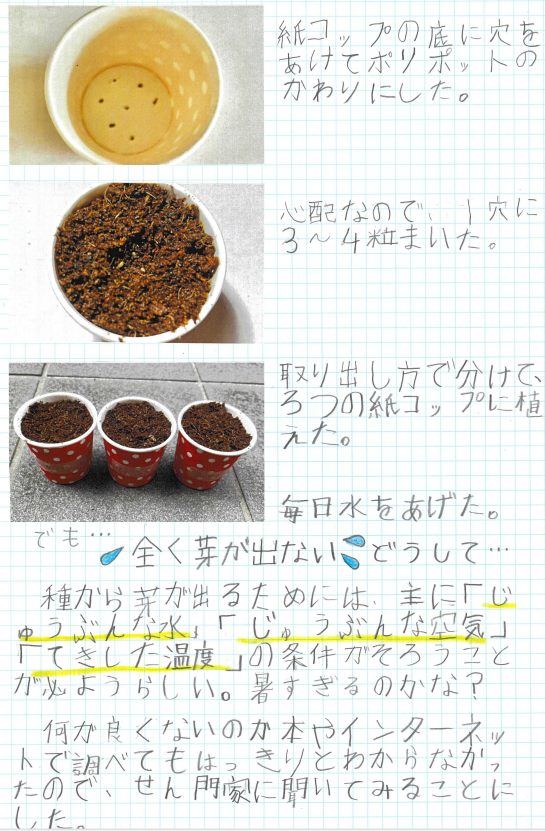 紙コップの底に穴を
あけてポリポットの
かわりにした。
心配なので、1穴に
3～4粒まいた。
取り出し方で分けて、
3つの紙コップに植
えた。
毎日水をあげた。
でも…
全く芽が出ない どうして…
種から芽が出るためには、主に「じ
ゅうぶんな水」「じゅうぶんな空気」
「てきした温度」の条件がそろうこと
が必ようらしい。暑すぎるのかな？
何が良くないのか本やインターネッ
トで調べてもはっきりとわからなかっ
たので、せん門家に聞いてみることに
した。